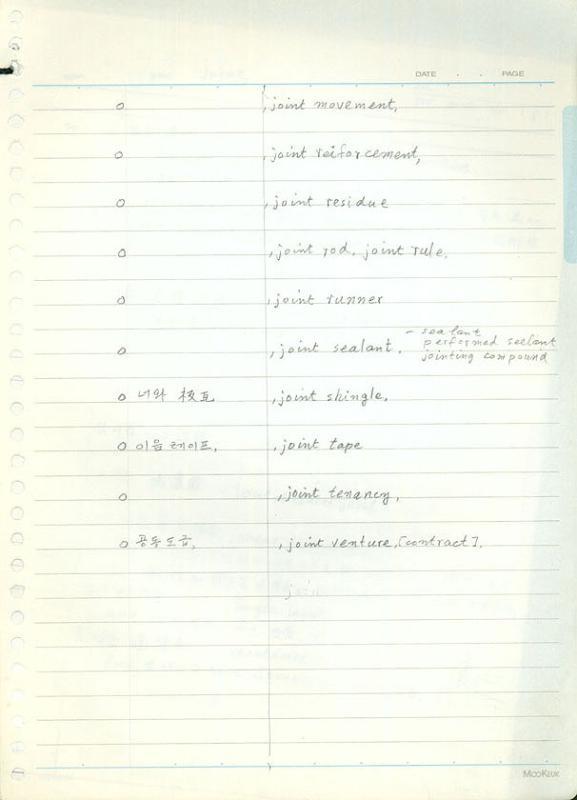 DATE . . PAGE
o , joint movement,
o , joint reiforcement,
o , joint residue
o , joint rod, joint rule.
o , joint runner
o , joint sealant. - sealant
performed seelant
jointing compound
o 너와 , joint shingle,
o 이음 테이프, , joint tape
o , joint tenancy,
o 공동도급, , joint venture,[contract].
join
MOOKEUK